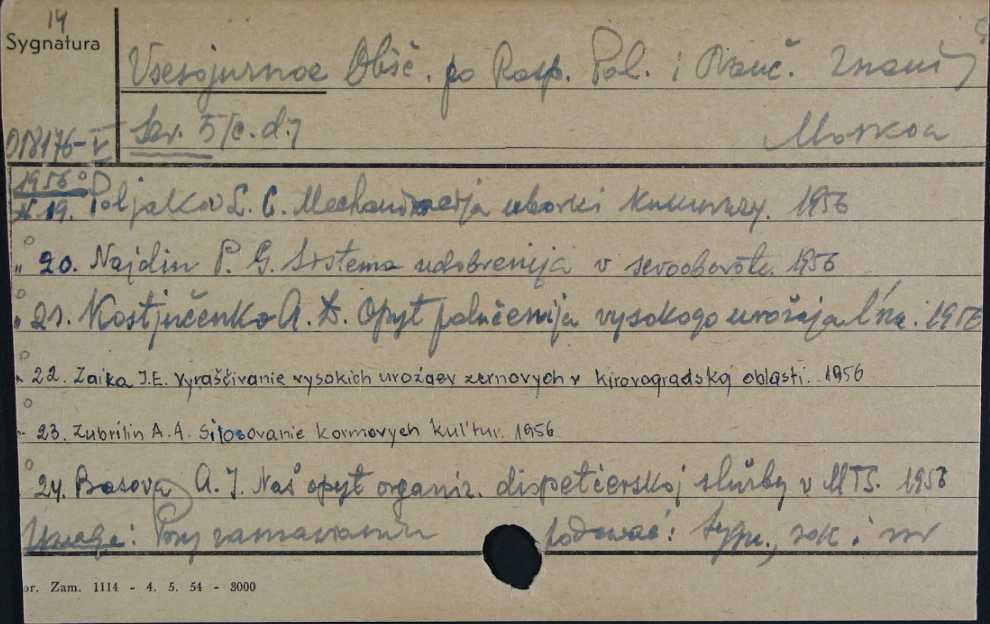 14
Sygnatura
Vsesojuznoe Obšč. po Rasp. Pol. i Nauč. Znanij
Ser. 5 /c.d./
Moskva
018176-V
1956
N 19. Poljakov L. C. Mechanizacija uborki kukuruzy. 1956
" 20. Najdin P. G. Sistema udobrenija v sevooborote. 1956
" 21. Kostjučenko A. D. Opyt polučenija vysokogo urožaja l'na. 1956
" 22. Zaika I.E. Vyraščivanie vysokich urožaev zernovych v Kirovogradskoj oblasti. 1956
" 23. Zubrilin A.A. Silosovanie kormovych kul'tur. 1956
" 24. Basova A. I. Naš opyt organiz. dispetčerskoj služby v MTS. 1956
Uwaga: Przy zamawianiu podawać: sygn., rok i nr
Zam. 1114 - 4. 5. 54 - 3000